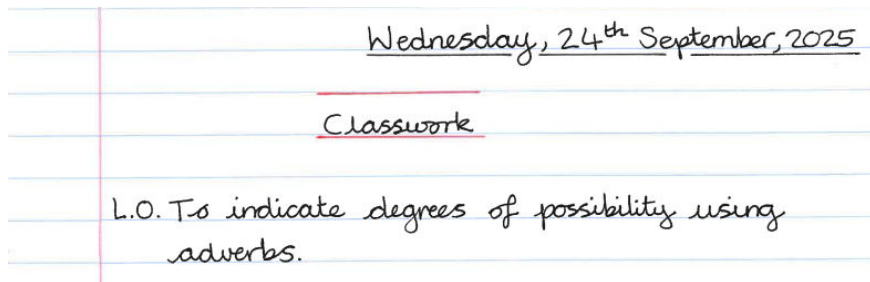 Wednesday, 24th September, 2025
Classwork
L.O. To indicate degrees of possibility using
adverbs.